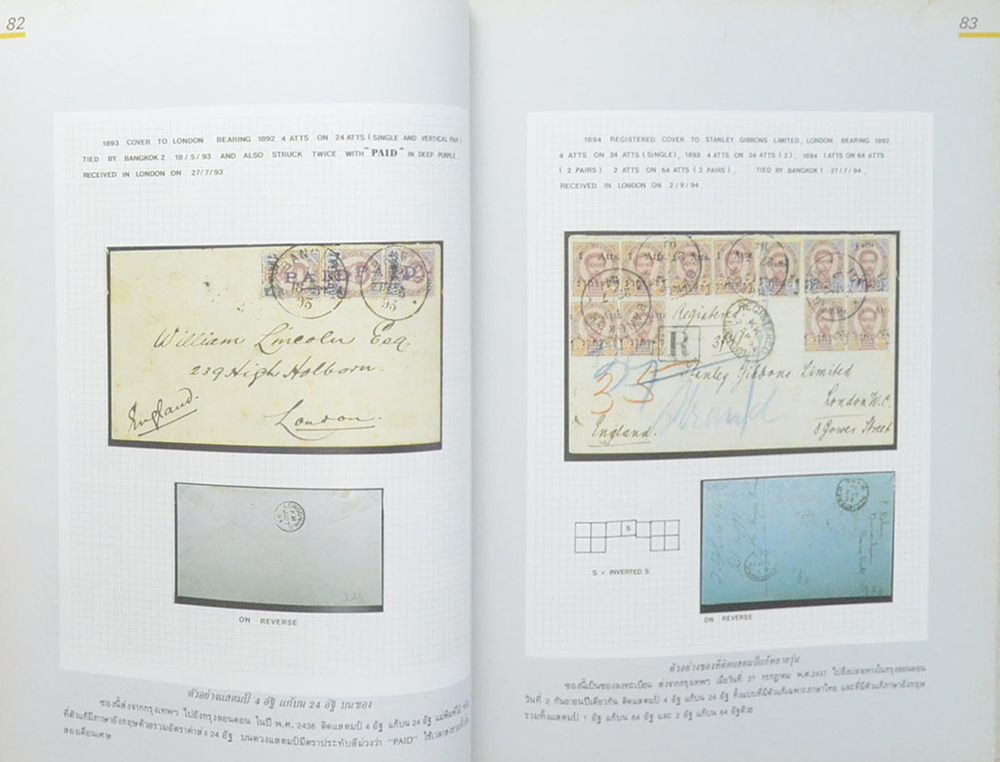 82
1893 COVER TO LONDON BEARING 1892 4 ATTS ON 24 ATTS (SINGLE AND VERTICAL PAIR)
TIED BY BANGKOK 2 18/5/93 AND ALSO STRUCK TWICE WITH "PAID" IN DEEP PURPLE.
RECEIVED IN LONDON ON 27/7/93
PAID PAID
William Lincoln Esq.
239 High Holborn.
England.
London.
ON REVERSE
ตัวอย่างแสตมป์ 4 อัฐ แก้บน 24 อัฐ บนซอง
ซองนี้ส่งจากกรุงเทพฯ ไปยังกรุงลอนดอน ในปี พ.ศ. 2436 ติดแสตมป์ 4 อัฐ แก้บน 24 อัฐ
ที่ตัวแก้มีภาษาอังกฤษด้วยรวมอัตราค่าส่ง 24 อัฐ บนดวงแสตมป์มีตราประทับสีม่วงว่า "PAID"
สองเดือนเศษ
83
1894 REGISTERED COVER TO STANLEY GIBBONS LIMITED, LONDON BEARING 1892
4 ATTS ON 24 ATTS (SINGLE), 1893 4 ATTS ON 24 ATTS (2), 1894 1 ATT ON 64 ATTS
(2 PAIRS) 2 ATTS ON 64 ATTS (2 PAIRS), TIED BY BANGKOK 1 27/7/94,
RECEIVED IN LONDON ON 2/9/94
Registered
R
Stanley Gibbons Limited
Strand
London W.C.
England.
8 Gower Street
S
S = INVERTED S
ON REVERSE
ตัวอย่างซองที่ติดแสตมป์แก้หลายรุ่น
ซองนี้เป็นซองลงทะเบียน ส่งจากกรุงเทพฯ เมื่อวันที่ 27 กรกฎาคม พ.ศ.2437 ไปถึงปลายทางในกรุงลอนดอน
วันที่ 2 กันยายนปีเดียวกัน ติดแสตมป์ 4 อัฐ แก้บน 24 อัฐ ทั้งแบบที่มีตัวแก้เฉพาะภาษาไทย และที่มีตัวแก้ภาษาอังกฤษ
รวมทั้งแสตมป์ 1 อัฐ แก้บน 64 อัฐ และ 2 อัฐ แก้บน 64 อัฐด้วย